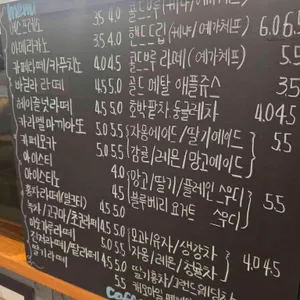 menu
에스프레소 3.5 4.0
아메리카노 3.5 4.0
카페라떼/카푸치노 4.0 4.5
바닐라 라떼 4.5 5.0
헤이즐넛라떼 4.5 5.0
카라멜 마끼아또 5.0 5.5
카페모카 5.0 5.5
아이스티 4.0
아이스티노 4.5
4.5 5.0
녹차/고구마/초코라떼 4.5 5.0
5.0 5.5
딸기라떼 5.5
콜드브루 (케냐/예가체프)
핸드드립 (케냐/예가체프) 6.0 6.5
콜드브루 라떼 (예가체프) 5.5
콜드 메탈 애플쥬스 3.5
호박팥차. 둥글레차 4.0 4.5
자몽에이드/딸기에이드
감귤/레몬/망고에이드 5.5
망고/딸기/플레인 스무디
블루베리 요거트 스무디 5.5
모과/유자/생강차
자몽/레몬/ 4.0 4.5